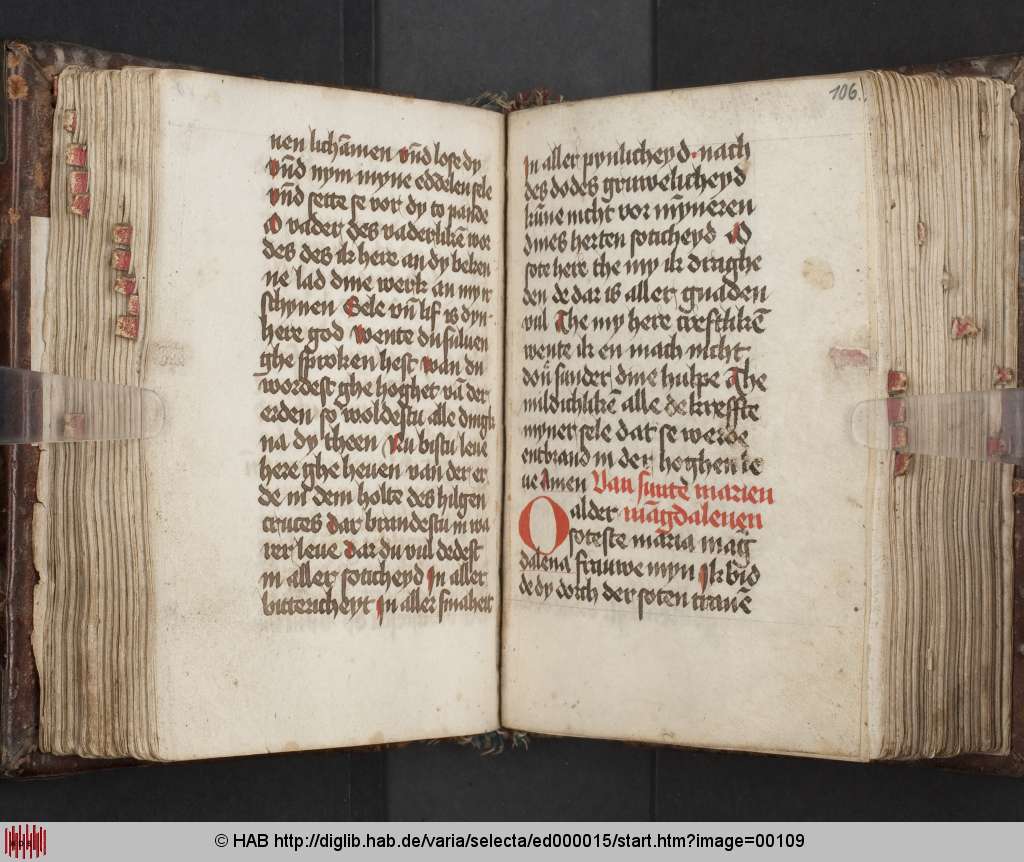 nen lichāmen vn̄d lose dy
vn̄d nym myne eddelen sele
vn̄d sette se vor dy to pande
O vader des vaderlikē wor
des des ik here an dy beken
ne lad dine werk an my ir
schynen Sele vn̄ lif is dyn
here god wente du suluen
ghe sproken hest wan du
wordest ghe hoghet vā der
erden so woldestu alle dingk
na dy theen Nu bistu leue
here ghe heuen van der er
de in dem holte des hilgen
cruces dar brandestu in wa
rer leue dar du vul dedest
in aller soticheyd in aller
bittericheyt in aller smaheit
106
in aller pynlicheyd nach
des dodes gruwelicheyd
kūne nicht vor mȳneren
dines herten soticheyd O
sote here the my ik draghe
den de dar is aller gnaden
vul The my here creftlikē
wente ik en mach nicht
don sunder dine hulpe The
mildichlikē alle de kreffte
myner sele dat se werde
entbrand in der hoghen le
ue Amen Van sunte marien
O alder māgdalenen
soteste maria mag
dalena frauwe myn Ik bid
de dy dorch der soten tranē
© HAB http://diglib.hab.de/varia/selecta/ed000015/start.htm?image=00109